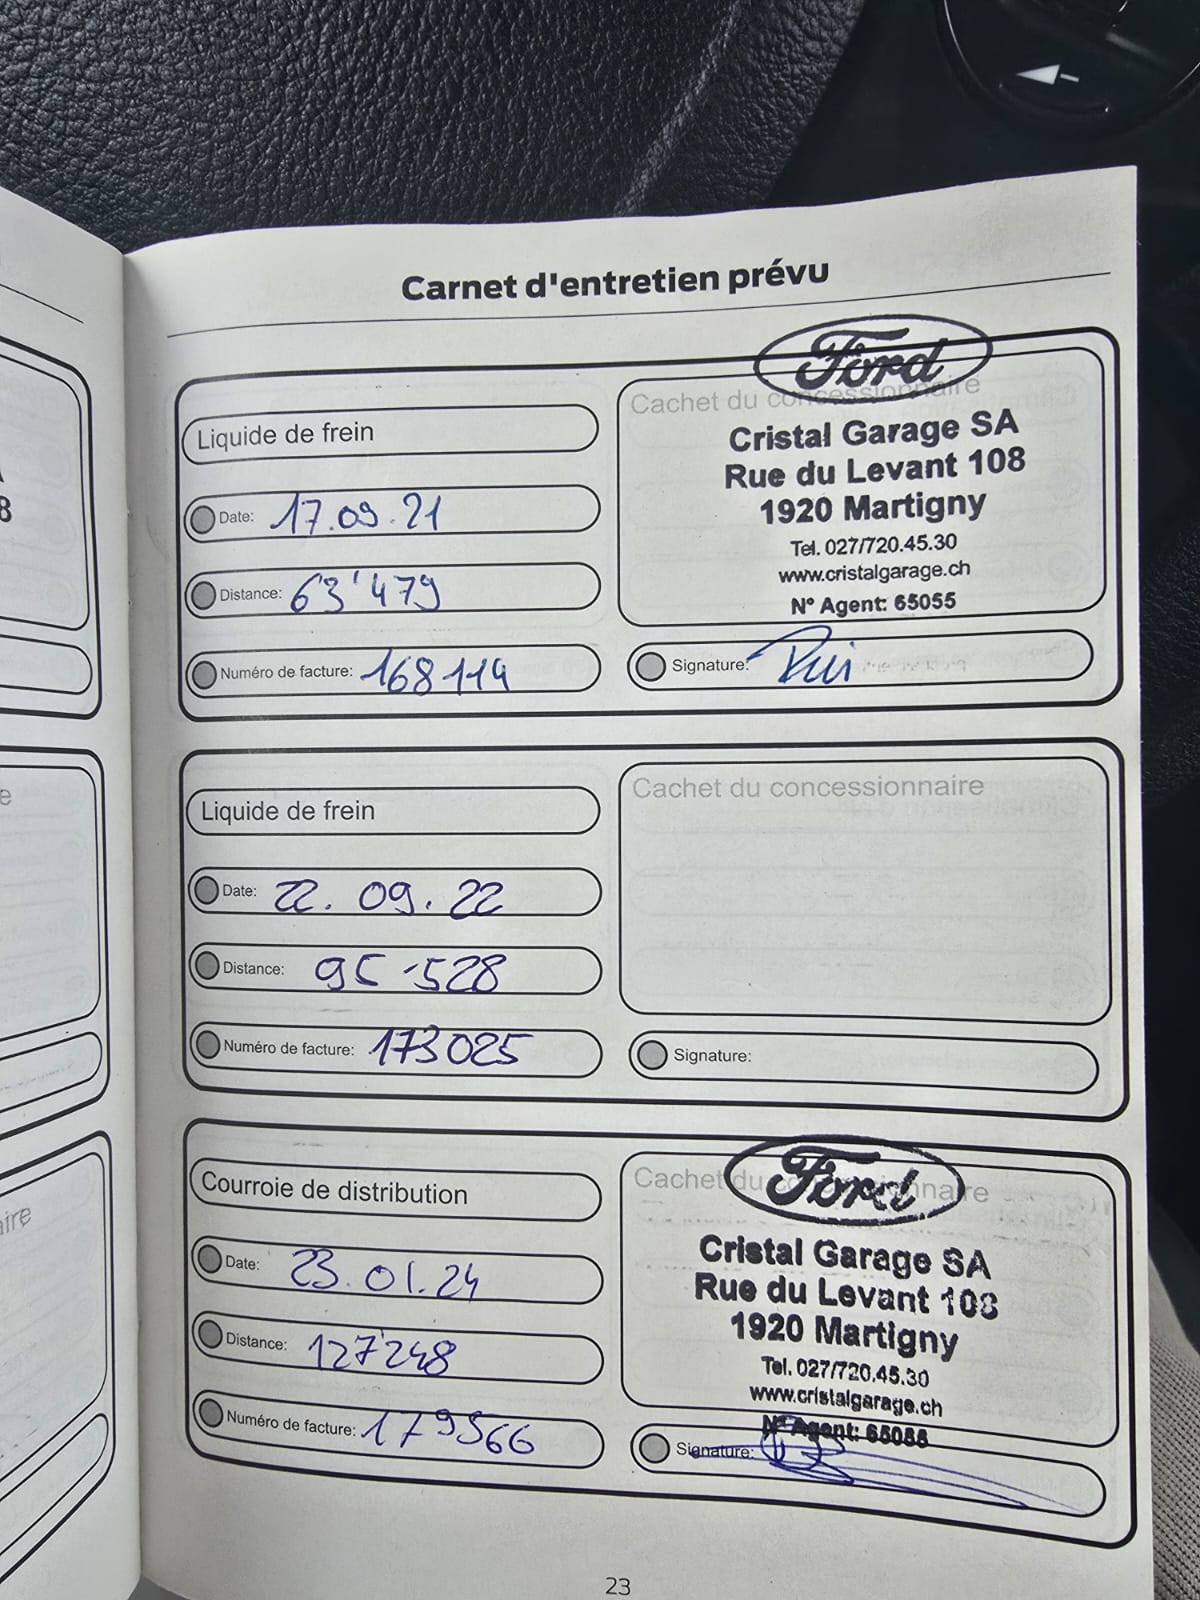 Carnet d'entretien prévu
Liquide de frein
Date: 17.09.21
Distance: 63'479
Numéro de facture: 168114
Cachet du concessionnaire
Ford
Cristal Garage SA
Rue du Levant 108
1920 Martigny
Tel. 027/720.45.30
www.cristalgarage.ch
N° Agent: 65055
Signature:
Liquide de frein
Date: 22.09.22
Distance: 95'528
Numéro de facture: 173025
Cachet du concessionnaire
Signature:
Courroie de distribution
Date: 23.01.24
Distance: 127'248
Numéro de facture: 179566
Cachet du concessionnaire
Ford
Cristal Garage SA
Rue du Levant 108
1920 Martigny
Tel. 027/720.45.30
www.cristalgarage.ch
N° Agent: 65055
Signature:
23